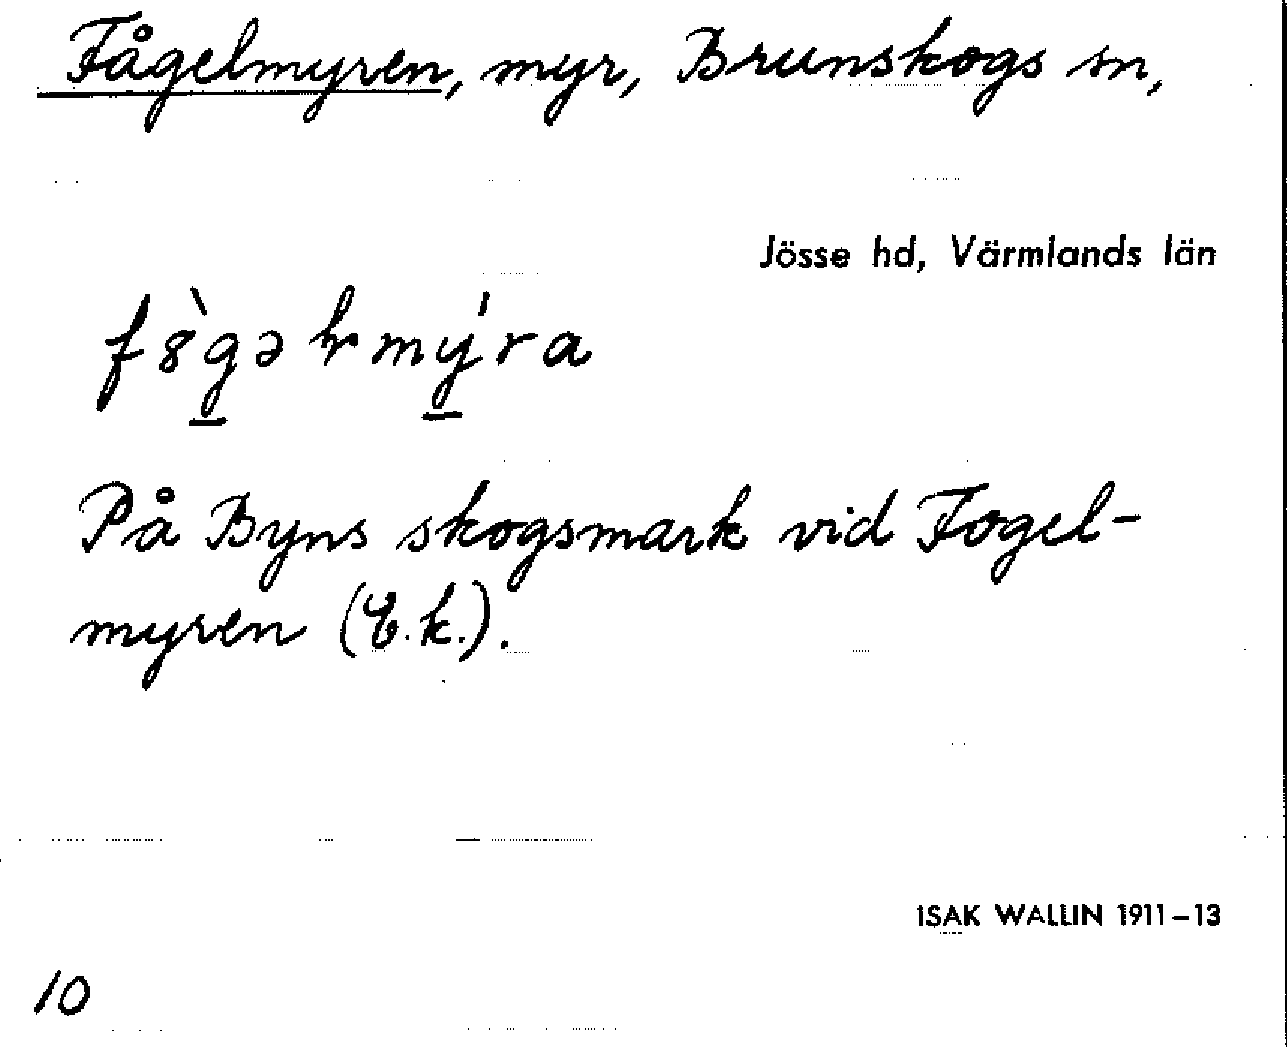 Fågelmyren, myr, Brunskogs sn,
Jösse hd, Värmlands län
På Byns skogsmark vid Fogel-
myren (E.k.).
ISAK WALLIN 1911–13
10